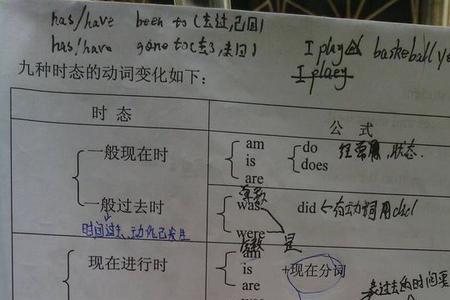 has/have been to (去过,已回)
has/have gone to (去了,未回)
I play basketball
I plaey
九种时态的动词变化如下:
时 态
公 式
一般现在时
am
is
are
do
does
经常, 状态.
一般过去时
时间过去、动作已发生
单数
was
were
did ← 有动词用did
复数
是
现在进行时
am
is
are
+现在分词
表过去的时间